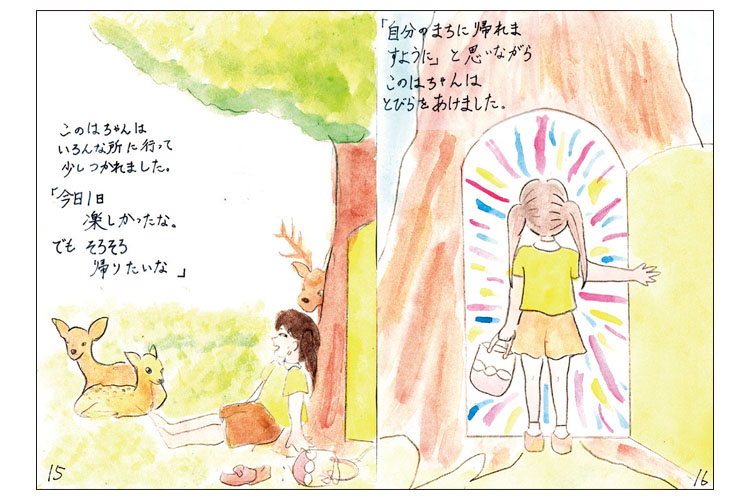 このはちゃんは
いろんな所に行って
少しつかれました。
「今日1日
楽しかったな。
でもそろそろ
帰りたいな」
15
「自分のまちに帰れま
すように」と思いながら
このはちゃんは
とびらをあけました。
16